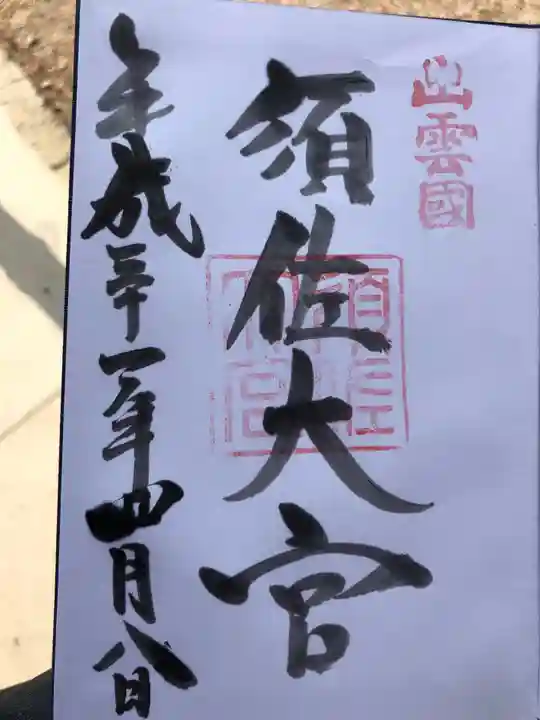 出雲國
須佐大宮
平成三十一年四月八日